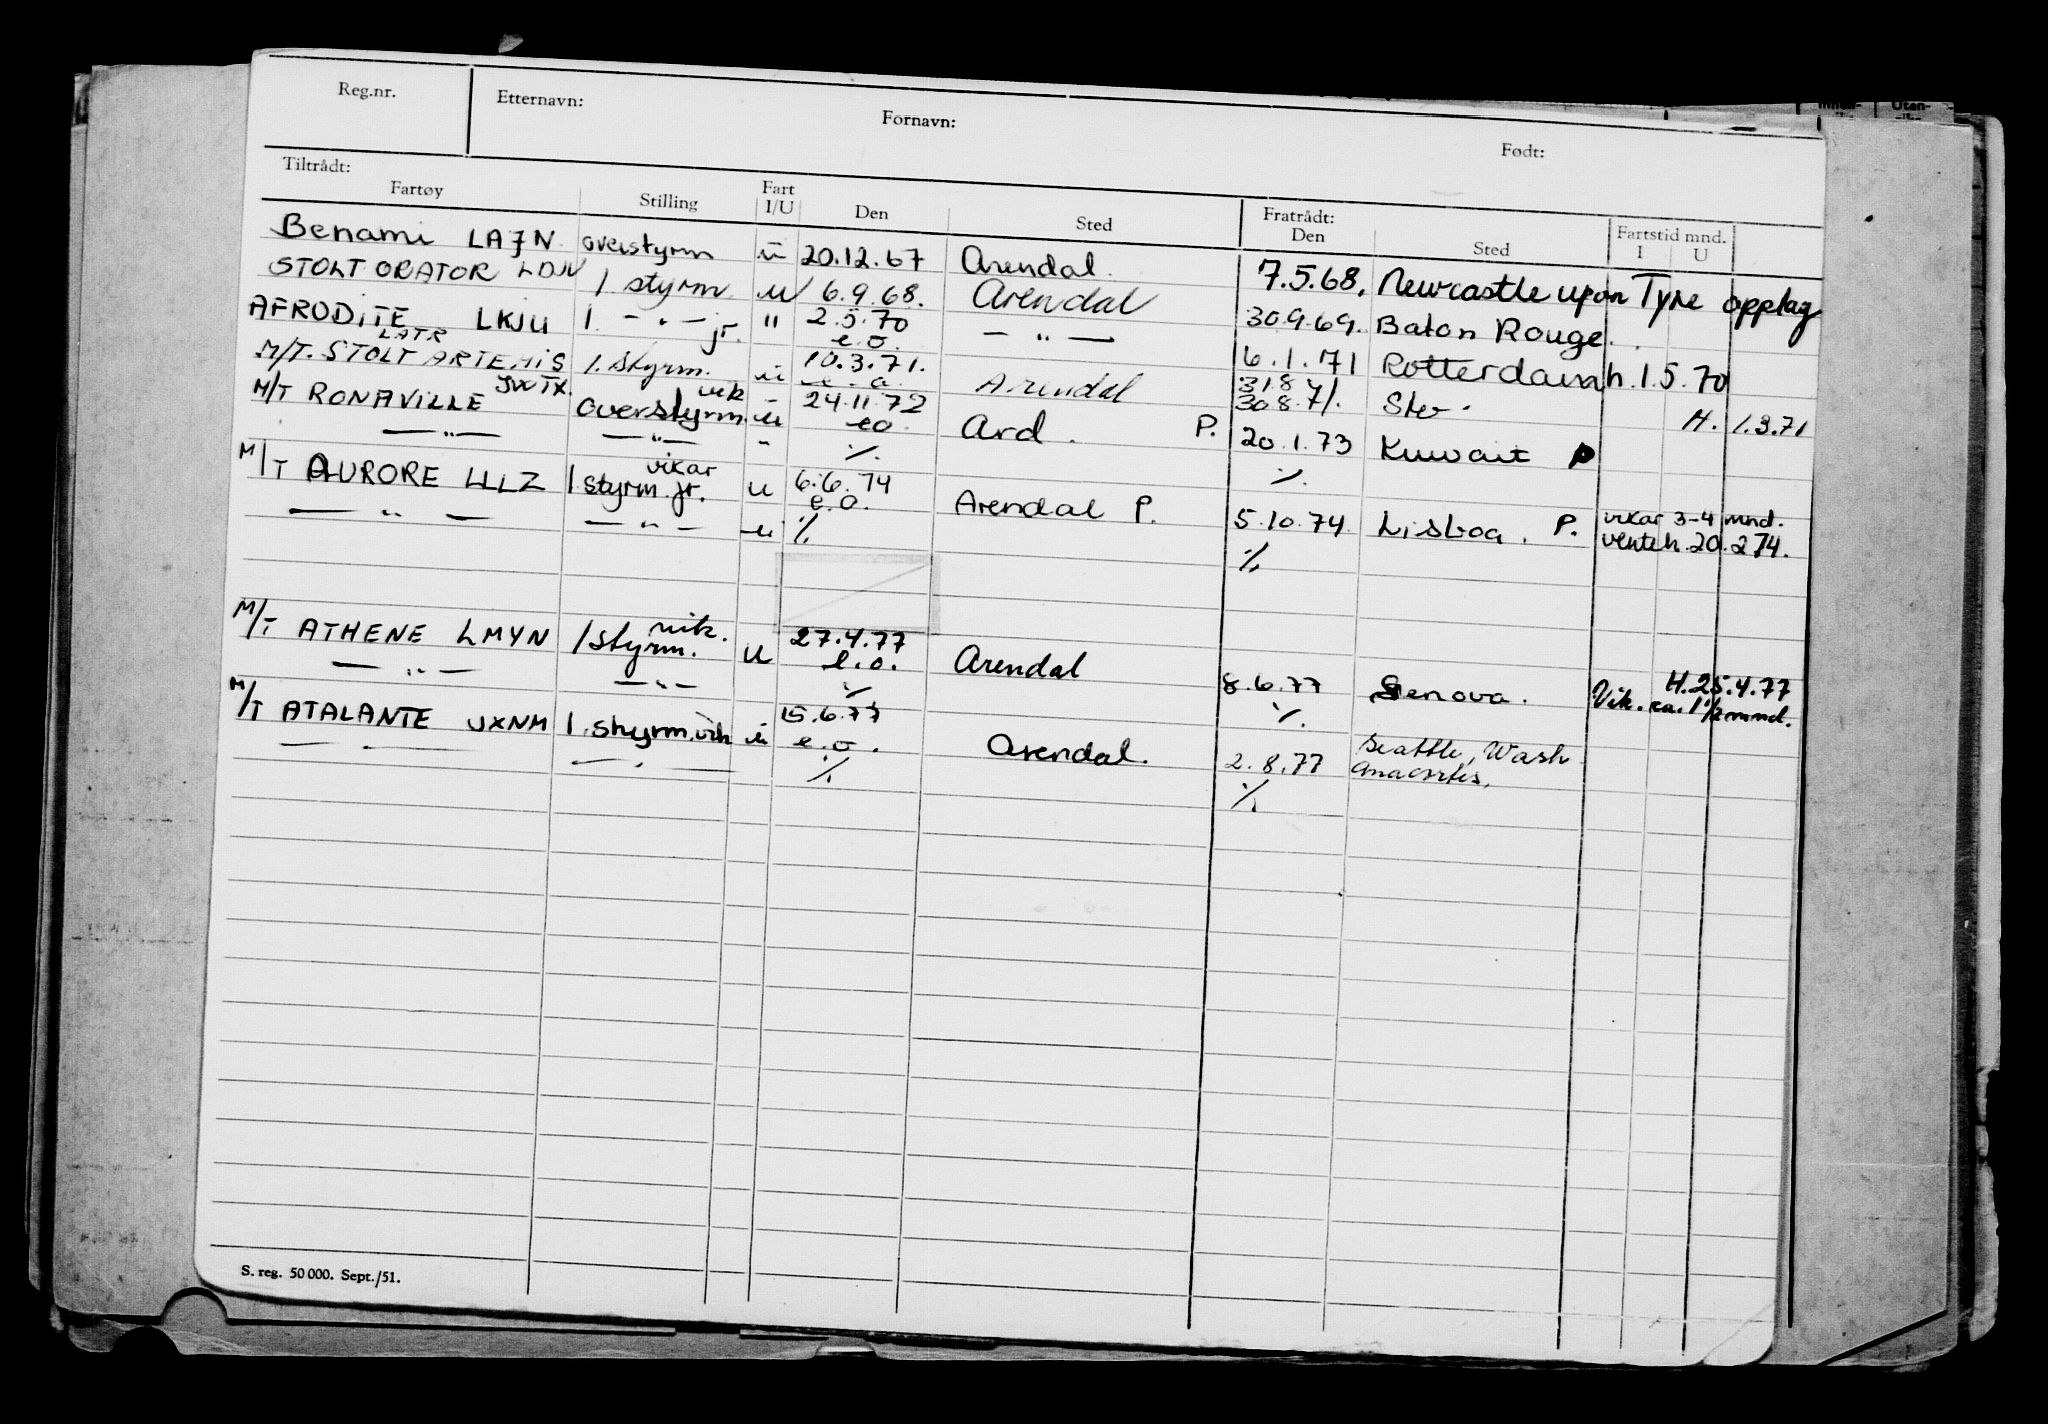 Reg.nr. Etternavn: Fornavn: Født:
Tiltrådt: Fratrådt:
Fartøy Stilling Fart I/U Den Sted Den Sted Fartstid mnd. I U
Benami LAJN overstyrm u 20.12.67 Arendal 7.5.68. Newcastle upon Tyne opplag
STOLT ORATOR 1 styrm u 6.9.68. Arendal 30.9.69. Baton Rouge.
AFRODITE LKJU 1. — " — jr. " 2.5.70 e.o. — " — 6.1.71 Rotterdam h.1.5.70
M/T. STOLT ARTEMIS LATR 1. styrm. u 10.3.71. Arendal 31.8.71. H. 1.3.71
M/T RONAVILLE JWTX. overstyrm. vik u 24.11.72 e.o. Ard. P. 20.1.73 Kuwait P
— " — — " — " ./. ./.
M/T AURORE LLLZ 1 styrm. jr. vikar u 6.6.74 e.o. Arendal P. 5.10.74 Lisboa. P. vikar 3-4 mnd.
venteh. 20.274.
— " — — " — u ./. ./.
M/T ATHENE LMYN 1 styrm. vik. u 27.4.77 e.o. Arendal 8.6.77 Genova. H.25.4.77
Vik. ca. 1 1/2 mnd.
— " — — " — ./. ./.
M/T ATALANTE JXNM 1. styrm. vik u 15.6.77 e.o. Arendal. 2.8.77 Seattle, Wash
Anacortes.
— " — — " — ./. ./.
S. reg. 50 000. Sept./51.